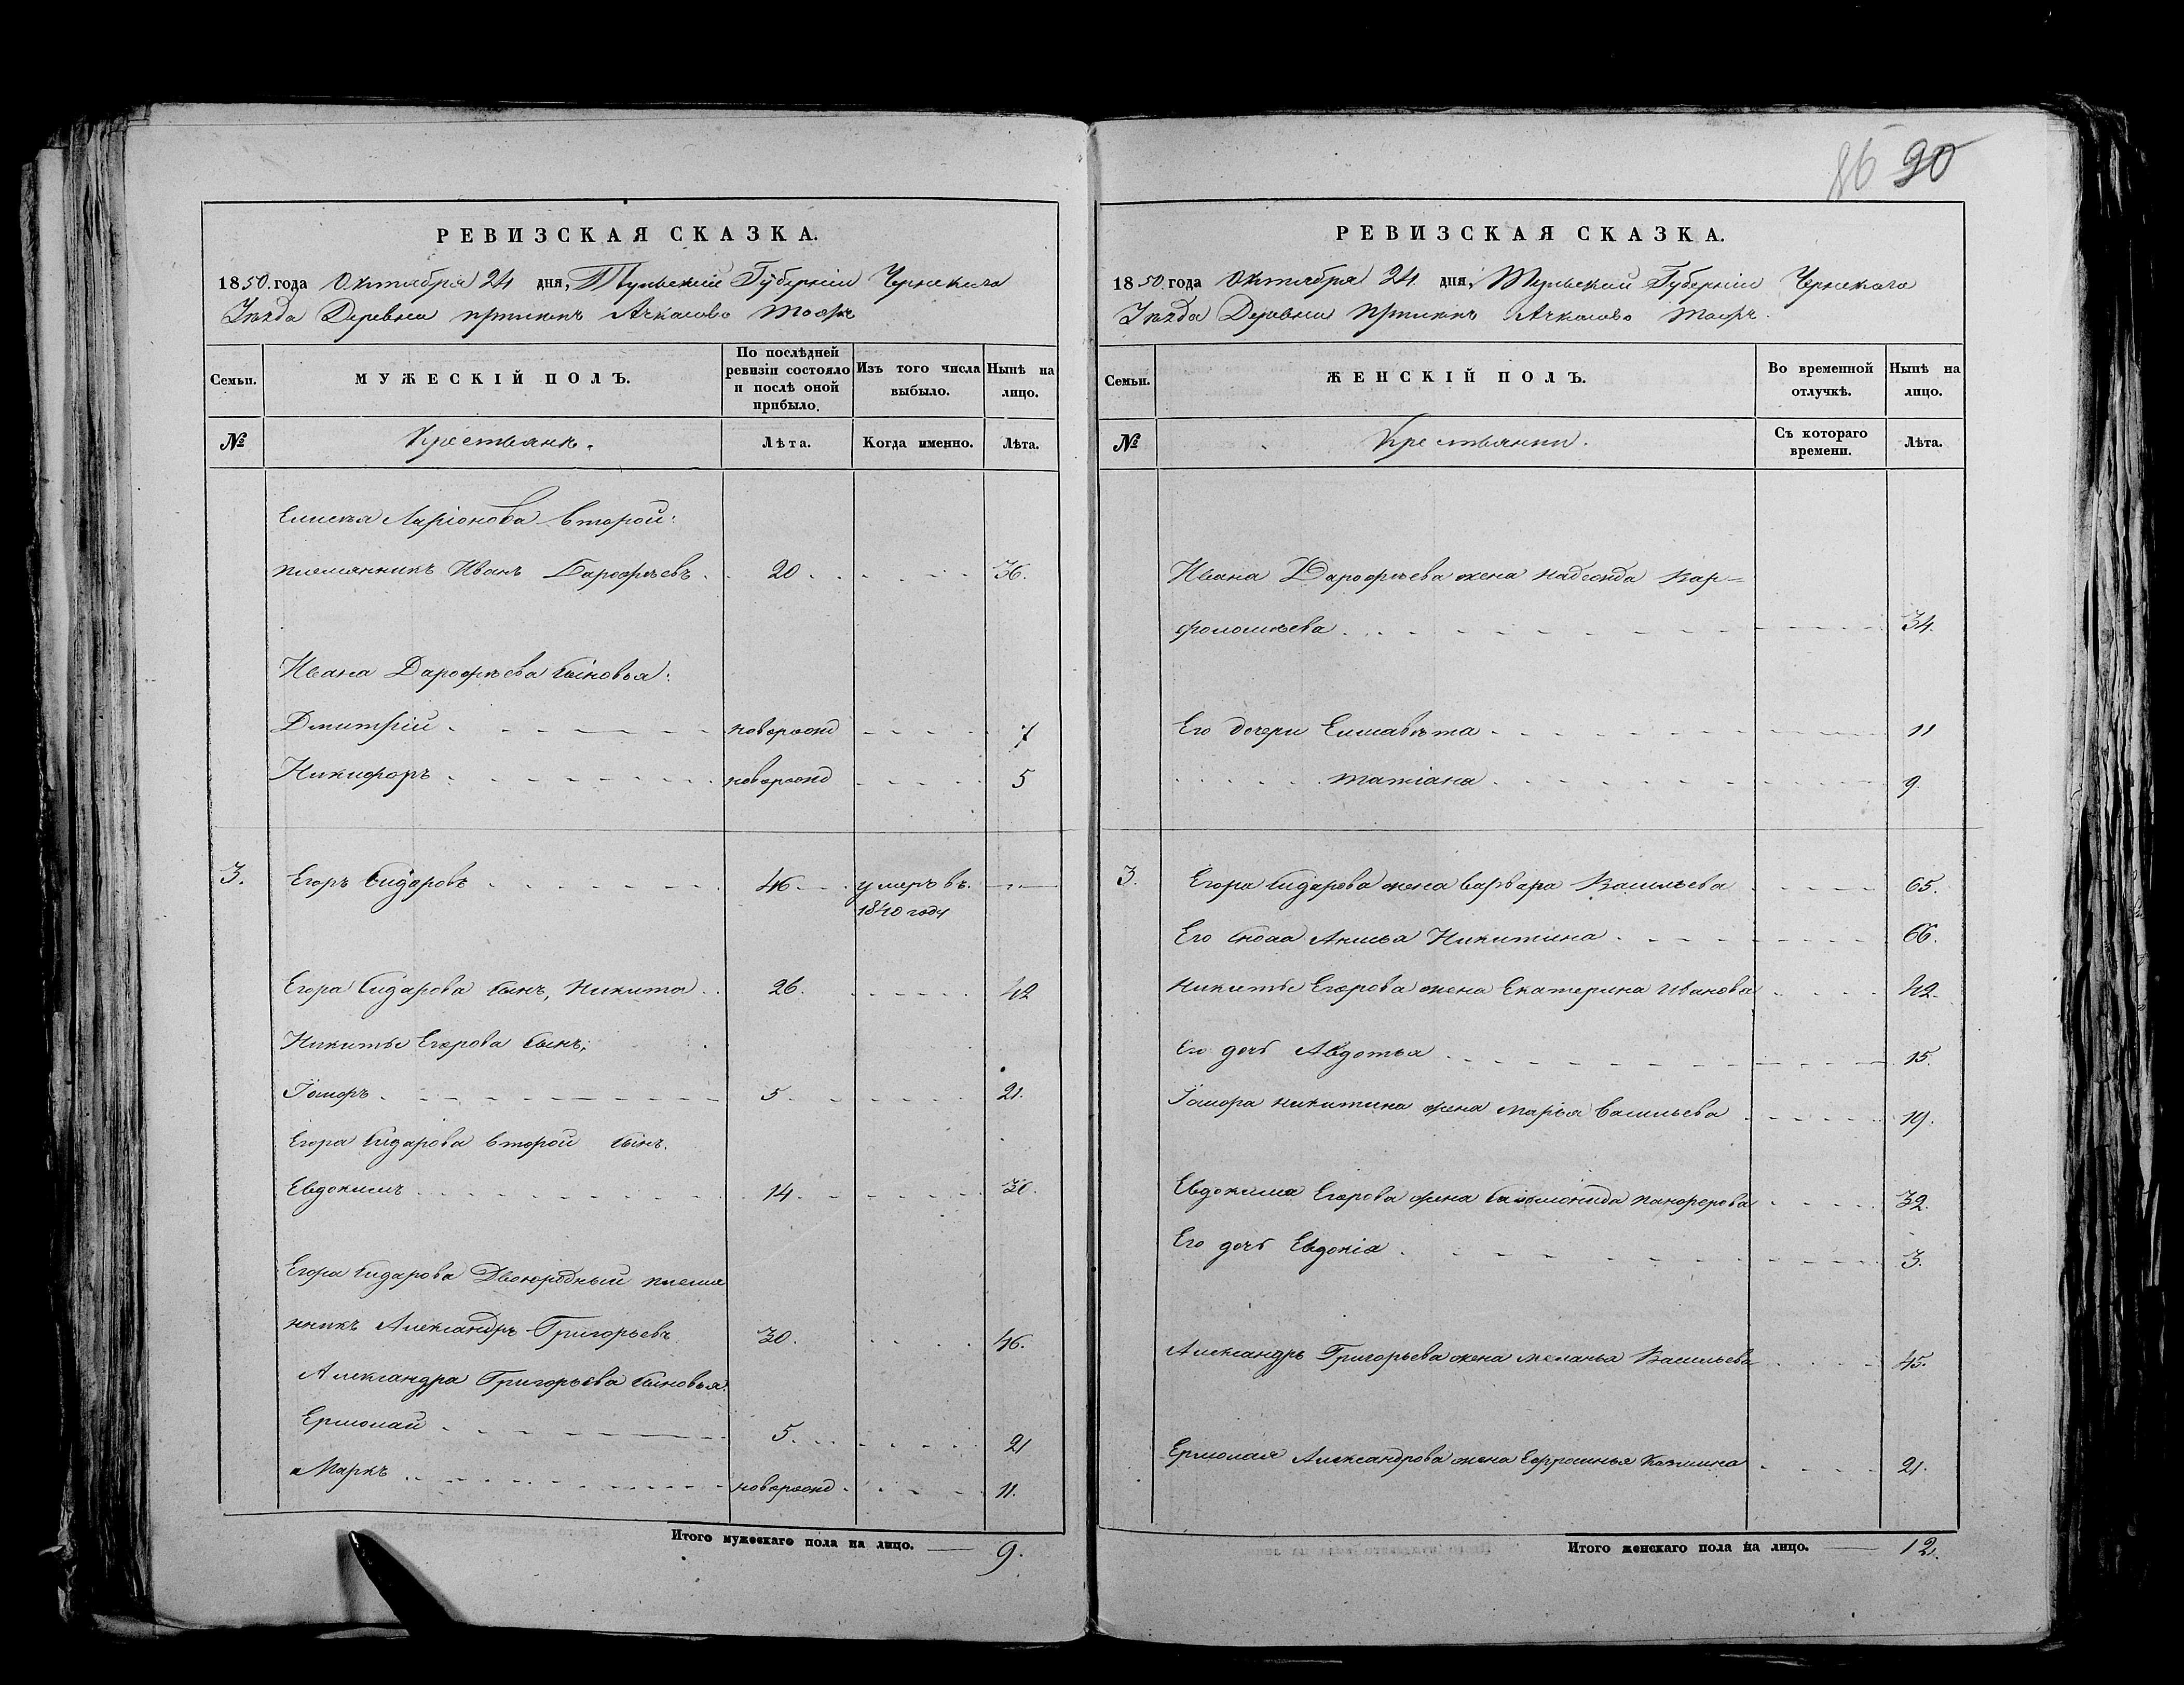 86 90
РЕВИЗСКАЯ СКАЗКА.
1850. года Октября 24 дня, Тульской Губерніи Чернскаго
Уѣзда Деревни Ачкасово тожъ
Семьи.
МУЖЕСКІЙ ПОЛЪ.
По послѣдней ревизіи состояло и послѣ оной прибыло.
Изъ того числа выбыло.
Нынѣ на лицо.
№
Крестьянъ.
Лѣта.
Когда именно.
Лѣта.
Ларіонова второй:
племянникъ Иванъ Дарофѣевъ 20 36.
Ивана Дарофѣева сыновья:
Дмитрій новорожд 7
Никифоръ новорожд 5
3. Егоръ Сидаровъ 46 умеръ въ
1840 году
Егора Сидарова сынъ, Никита 26. 42
Никиты Егорова сынъ,
5 21.
Егора Сидарова второй сынъ.
Евдокимъ 14. 30.
Егора Сидарова Двоюродный племя
нникъ Александръ Григорьевъ 30. 46.
Александра Григорьева сыновья:
Ермолай 5. 21
Маркъ новорожд 11.
Итого мужескаго пола на лицо. 9.
РЕВИЗСКАЯ СКАЗКА.
1850 года Октября 24 дня, Тульской Губерніи Чернскаго
Уѣзда Деревни Ачкасово тожъ.
Семьи.
ЖЕНСКІЙ ПОЛЪ.
Во временной отлучкѣ.
Нынѣ на лицо.
№
Крестьянки.
Съ котораго времени.
Лѣта.
Ивана Дарофѣева жена Надежда Вар=
фоломѣева 34.
Его дочери Елизавѣта 11
Татіана 9.
3. Егора Сидарова жена Варвара Васильева 65.
Его Анисья Никитина 66.
Никиты Егорова жена Екатерина Иванова 42.
Его дочь Авдотья 15.
Никитина жена Марья Васильева 19.
Евдокима Егорова жена 32.
Его дочь Евдокія 3.
Александръ Григорьева жена Меланья Васильева 45.
Ермолая Александрова жена Козмина 21.
Итого женскаго пола на лицо. 12.